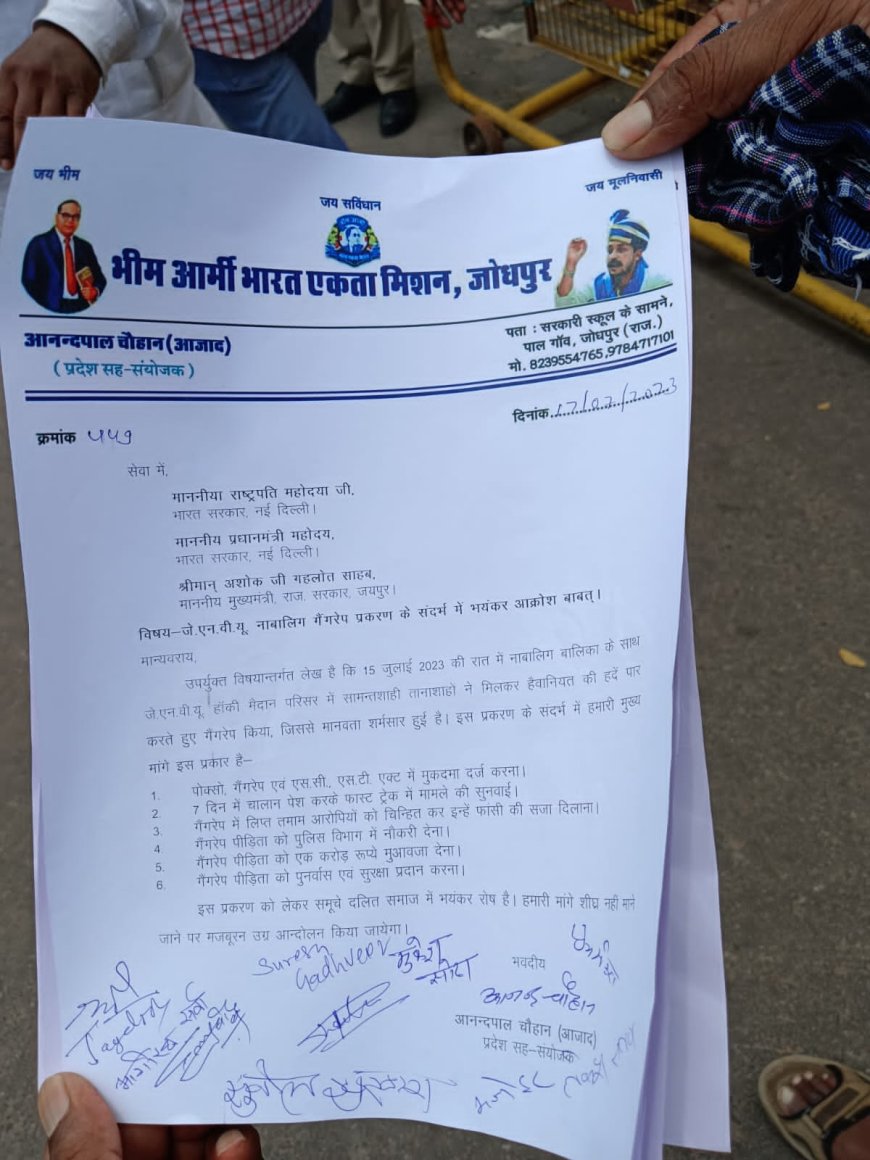 जय भीम
जय संविधान
जय मूलनिवासी
भीम आर्मी भारत एकता मिशन, जोधपुर
आनन्दपाल चौहान (आजाद)
( प्रदेश सह-संयोजक )
पता : सरकारी स्कूल के सामने,
पाल गॉव, जोधपुर (राज.)
मो. 8239554765,9784717101
क्रमांक ५५१
दिनांक
सेवा में,
माननीया राष्ट्रपति महोदया जी,
भारत सरकार, नई दिल्ली।
माननीय प्रधानमंत्री महोदय,
भारत सरकार, नई दिल्ली।
श्रीमान् अशोक जी गहलोत साहब,
माननीय मुख्यमंत्री, राज. सरकार, जयपुर।
विषय–जे.एन.वी.यू. नाबालिग गैंगरेप प्रकरण के संदर्भ में भयंकर आक्रोश बाबत्।
मान्यवराय,
उपर्युक्त विषयान्तर्गत लेख है कि 15 जुलाई 2023 की रात में नाबालिग बालिका के साथ
जे.एन.वी.यू. हॉकी मैदान परिसर में सामन्तशाही तानाशाहो ने मिलकर हैवानियत की हदें पार
करते हुए गैंगरेप किया, जिससे मानवता शर्मसार हुई है। इस प्रकरण के संदर्भ में हमारी मुख्य
मांगे इस प्रकार है–
1. पोक्सो, गैंगरेप एवं एस.सी., एस.टी. एक्ट में मुकदमा दर्ज करना।
2. 7 दिन में चालान पेश करके फास्ट ट्रेक में मामले की सुनवाई।
3. गैंगरेप में लिप्त तमाम आरोपियों को चिन्हित कर इन्हें फांसी की सजा दिलाना।
4. गैंगरेप पीड़िता को पुलिस विभाग में नौकरी देना।
5. गैंगरेप पीड़िता को एक करोड़ रूप्ये मुआवजा देना।
6. गैंगरेप पीड़िता को पुनर्वास एवं सुरक्षा प्रदान करना।
इस प्रकरण को लेकर समूचे दलित समाज में भयंकर रोष है। हमारी मांगे शीघ्र नहीं माने
जाने पर मजबूरन उग्र आन्दोलन किया जायेगा।
Suresh
Gadhveer
मुकेश
भवदीय
आनन्द चौहान
आनन्दपाल चौहान (आजाद)
प्रदेश सह-संयोजक